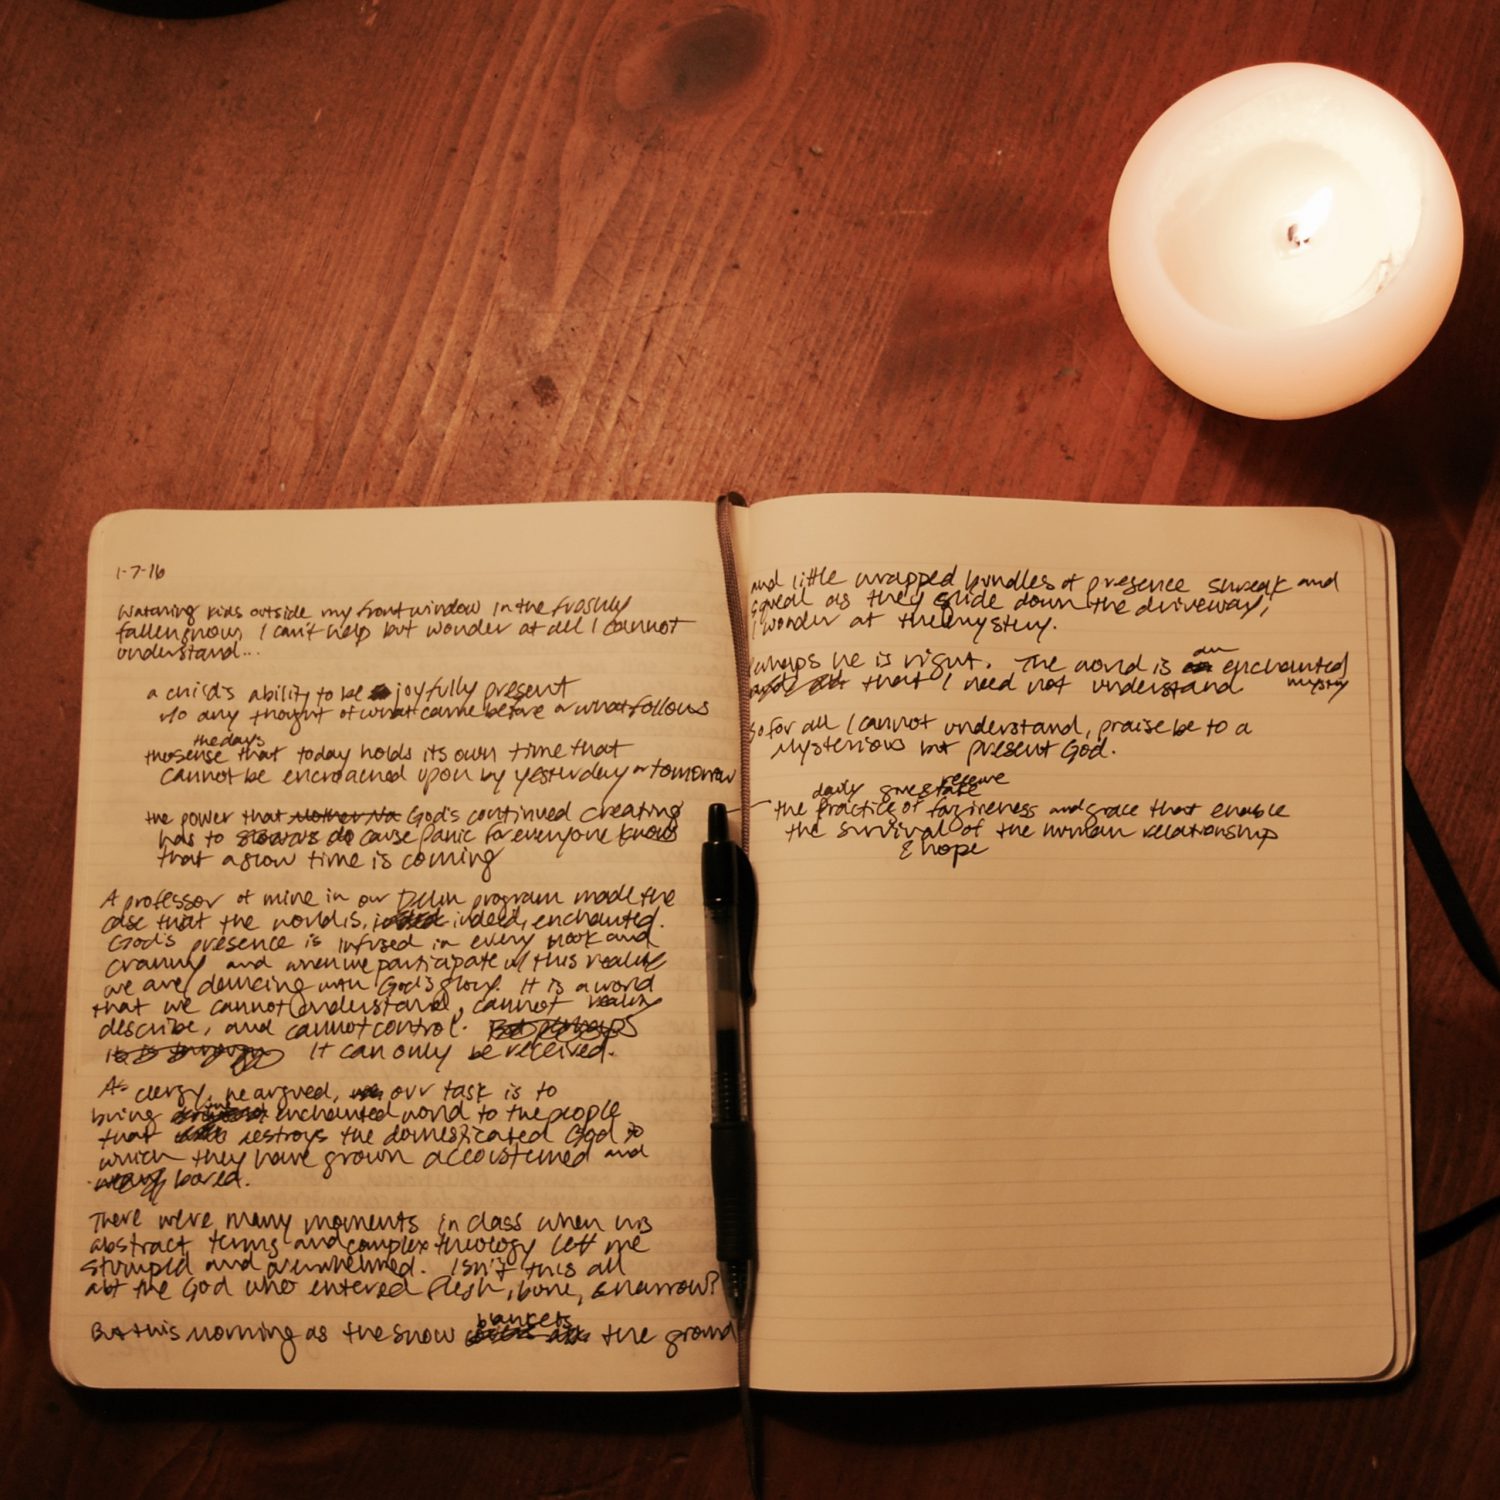 1-7-16
Watching kids outside my front window in the freshly
fallen snow, I can't help but wonder at all I cannot
understand...
a child's ability to be joyfully present
w/o any thought of what came before or what follows
the days
the sense that today holds its own time that
cannot be encroached upon by yesterday or tomorrow
the power that Mother Na God's continued creating
has to do cause panic for everyone knows
that a slow time is coming
A professor of mine in our DMin program made the
case that the world is, indeed, enchanted.
God's presence is infused in every nook and
cranny and when we participate w/ this reality
we are dancing with God's glory. It is a world
that we cannot understand, cannot
describe, and cannot control. But perhaps
it is through It can only be received.
As clergy, he argued, our task is to
bring enchanted world to the people
that destroys the domesticated God to
which they have grown accoustemed and
bored.
There were many moments in class when his
abstract terms and complex theology left me
stumped and overwhelmed. Isn't this all
abt the God who entered flesh, bone, & marrow?
blankets
But this morning as the snow the ground
and little wrapped bundles of presence shreak and
squeal as they slide down the driveway,
I wonder at the mystery.
an
Perhaps he is right. The world is enchanted
that I need not understand mystery
So for all I cannot understand, praise be to a
mysterious but present God.
receive
daily give & take
the practice of forgiveness and grace that enable
the survival of the human relationship
& hope